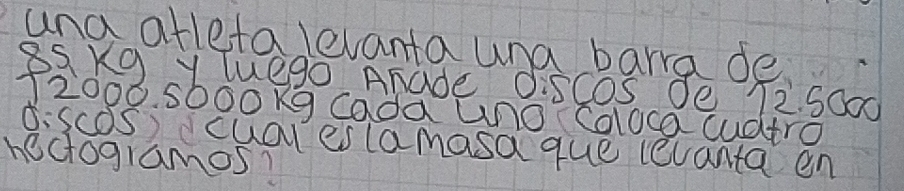 una atleta levanta una barra de
85 Kg y luego Añade discos de 12.5000
12000.5000 Kg cada uno coloca cuatro
discos) cual es la masa que levanta en
hectogramos?